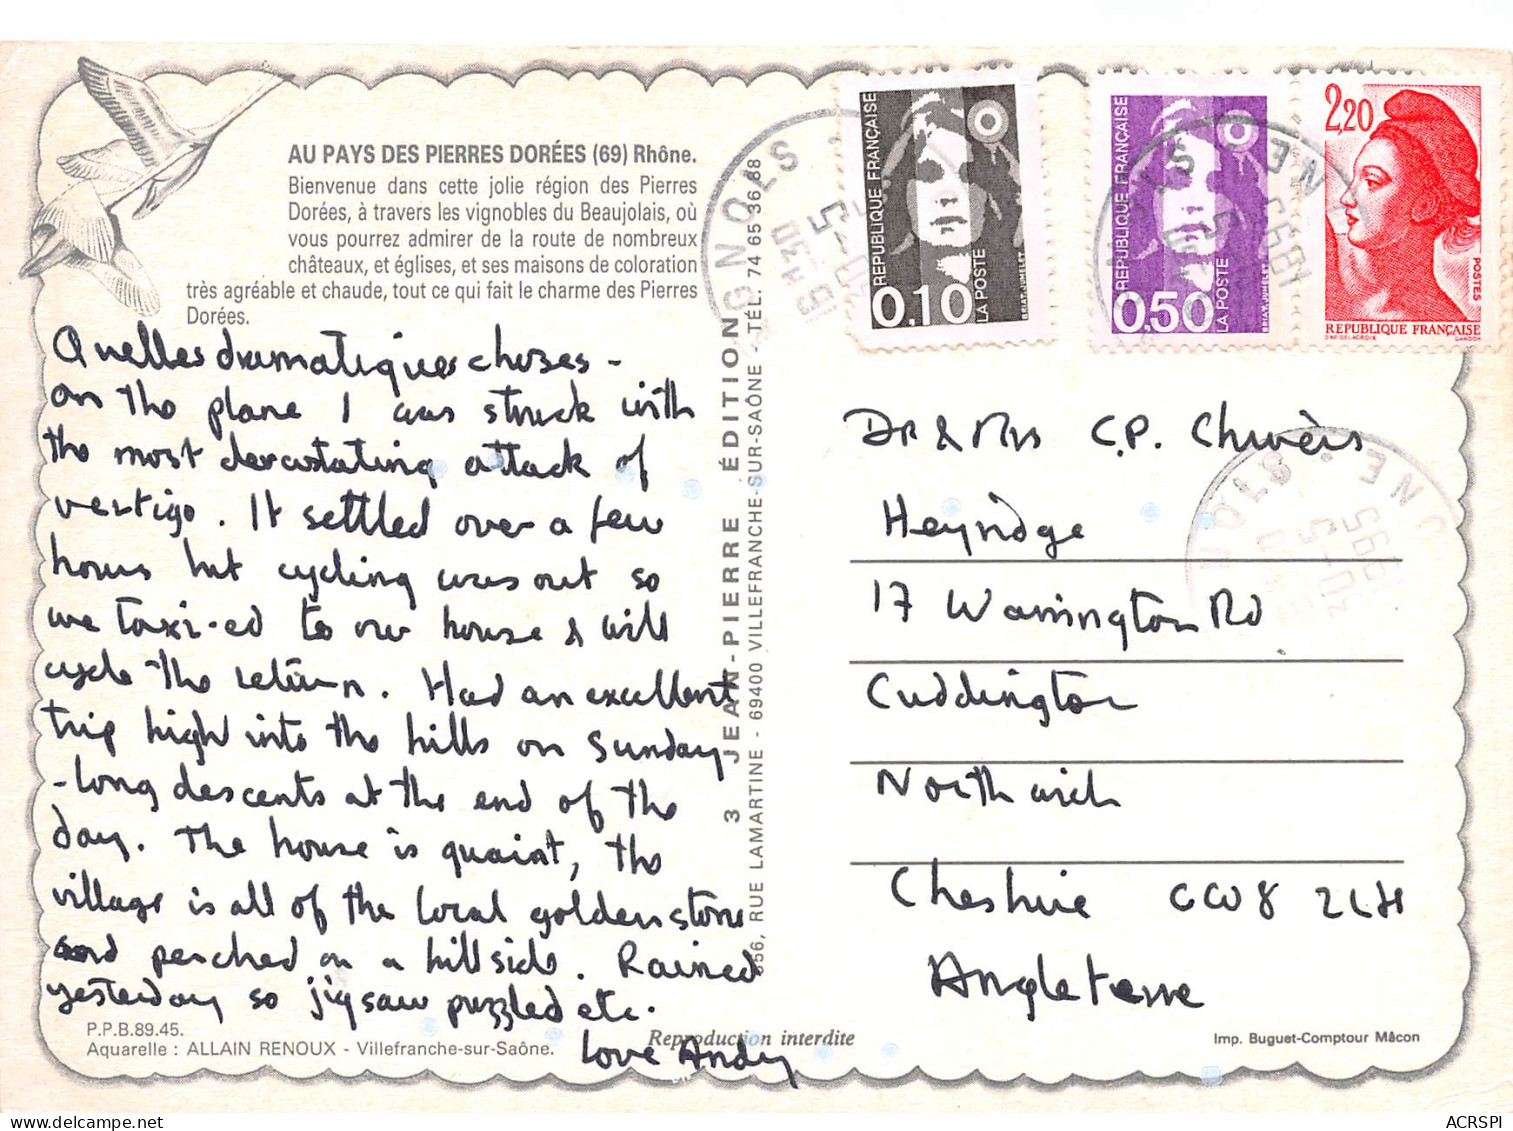 AU PAYS DES PIERRES DORÉES (69) Rhône.
Bienvenue dans cette jolie région des Pierres
Dorées, à travers les vignobles du Beaujolais, où
vous pourrez admirer de la route de nombreux
châteaux, et églises, et ses maisons de coloration
très agréable et chaude, tout ce qui fait le charme des Pierres
Dorées.
Quelles dramatiques choses -
on the plane I was struck with
the most devastating attack of
vertigo. It settled over a few
hours but cycling was out so
we taxi-ed to our house & will
cycle the return. Had an excellent
trip high into the hills on Sunday
- long descents at the end of the
day. The house is quaint, the
village is all of the local golden stone
and perched on a hillside. Rained
yesterday so jigsaw puzzled etc.
Love Andy
P.P.B.89.45.
Aquarelle : ALLAIN RENOUX - Villefranche-sur-Saône.
Reproduction interdite
Imp. Buguet-Comptour Mâcon
3 JEAN-PIERRE ÉDITION
656, RUE LAMARTINE - 69400 VILLEFRANCHE-SUR-SAÔNE - TÉL. 74 65 36 68
RÉPUBLIQUE FRANÇAISE
0,10
LA POSTE
BRIAT-JUMELET
RÉPUBLIQUE FRANÇAISE
0,50
LA POSTE
BRIAT-JUMELET
2,20
POSTES
REPUBLIQUE FRANÇAISE
D'AP. DELACROIX GANDON
Dr & Mrs C.P.
Heyridge
17 Warrington Rd
Cuddington
Northwich
Cheshire CW8 2LH
Angleterre
ACRSPI